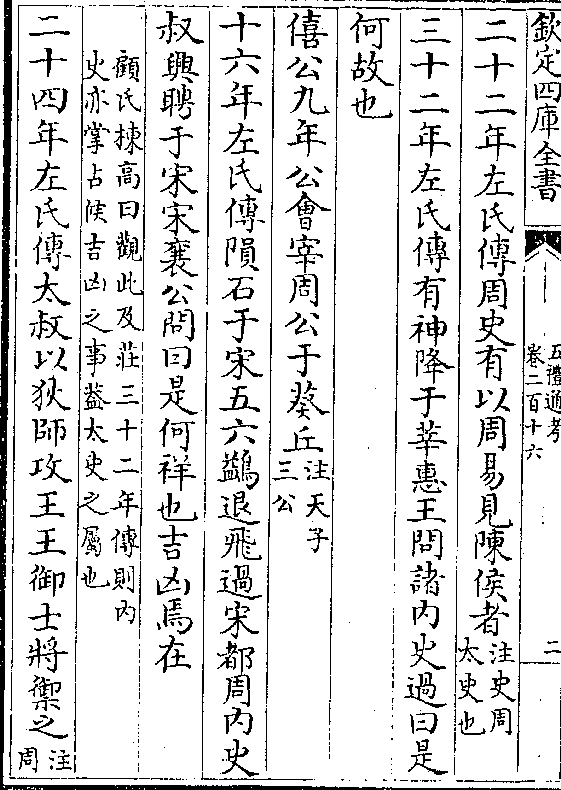 欽定四庫全書
五禮通考
卷二百十六
二
二十二年左氏傳周史有以周易見陳侯者注史周
太史也
三十二年左氏傳有神降于莘惠王問諸内史過曰是
何故也
僖公九年公會宰周公于葵丘注天子
三公
十六年左氏傳隕石于宋五六鷁退飛過宋都周内史
叔興聘于宋宋襄公問曰是何祥也吉凶焉在
顧氏棟高曰觀此及莊三十二年傳則内
史亦掌占候吉凶之事葢太史之屬也
二十四年左氏傳太叔以狄師攻王王御士將禦之注
周